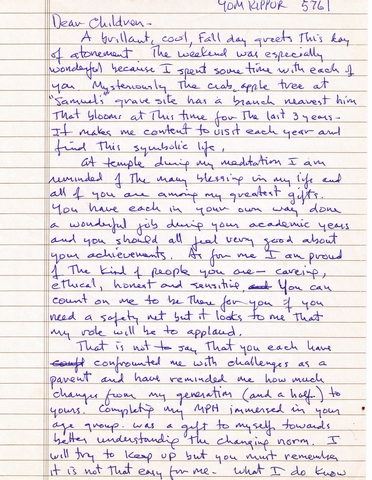 YOM KIPPUR 5761
Dear Children-
A brilliant, cool, Fall day greets this day
of atonement. The weekend was especially
wonderful because I spent some time with each of
you. Mysteriously the crab apple tree at
"Samuel's" grave site has a branch nearest him
that blooms at this time for the last 3 years-
It makes me content to visit each year and
find this symbolic life.
At temple during my meditation I am
reminded of the many blessing in my life and
all of you are among my greatest gifts.
You have each in your own way done
a wonderful job during your academic years
and you should all feel very good about
your achievements. As for me I am proud
of the kind of people you are— careing,
ethical, honest and sensitive. You can
count on me to be there for you if you
need a safety net but it looks to me that
my role will be to applaud.
That is not to say that you each have
confrounted me with challenges as a
parent and have reminded me how much
changes from my generation (and a half) to
yours. Completing my MPH immersed in your
age group was a gift to myself towards
better understanding the changing norm. I
will try to keep up but you must remember
it is not that easy for me. What I do know